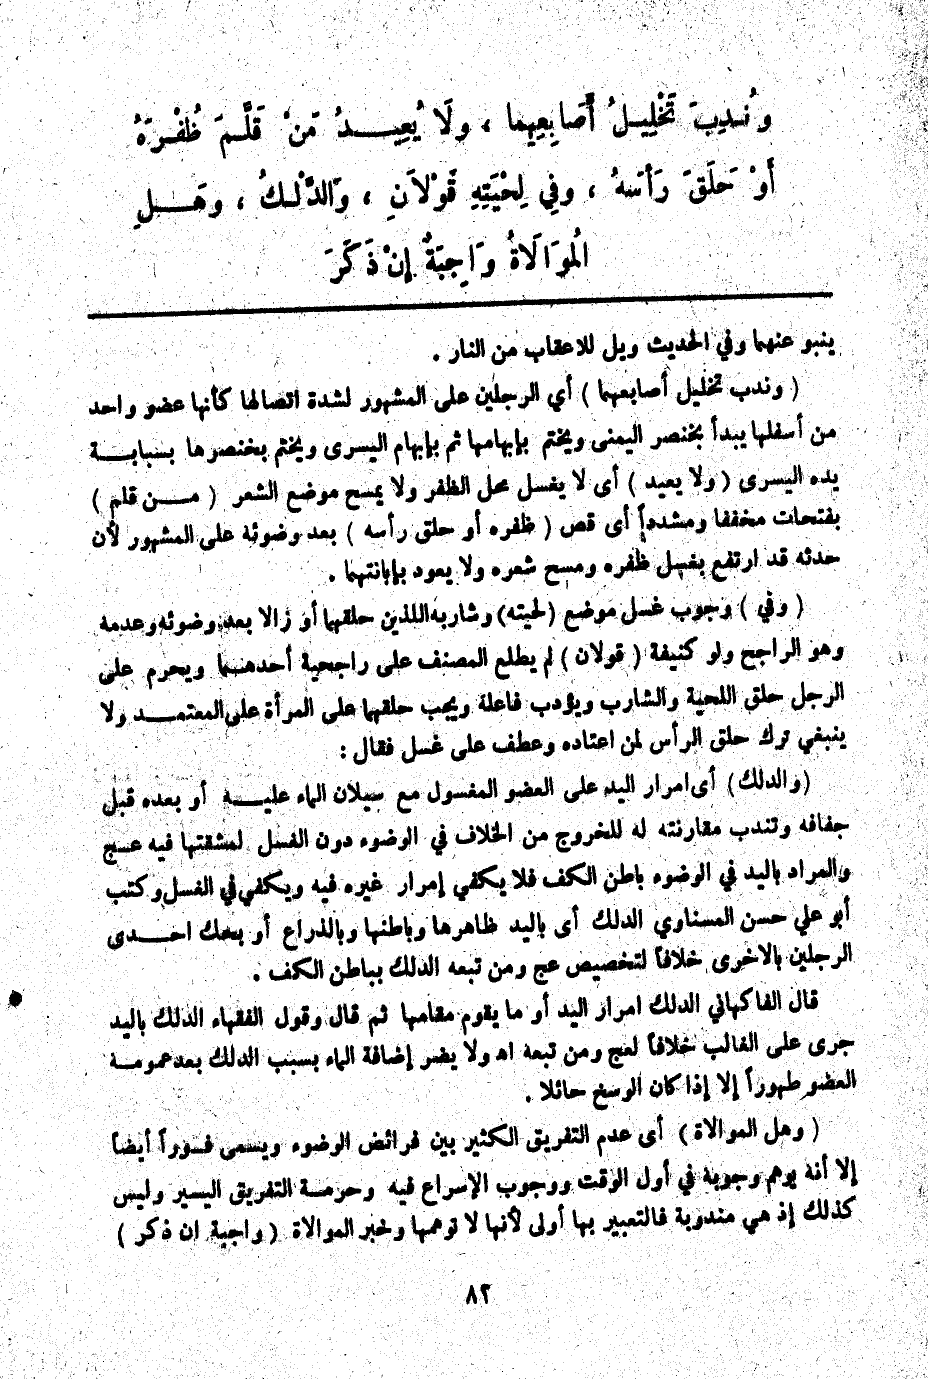 وَنُدِبَ تَخْلِيلُ أَصَابِعِهِما ، وَلَا يُعِيدُ مَنْ قَلَّمَ ظُفْرَهُ
أَوْ حَلَقَ رَأْسَهُ ، وَفِي لِحْيَتِهِ قَوْلَانِ ، وَالدَّلْكُ ، وَهَلِ
الْمُوَالَاةُ وَاجِبَةٌ إِنْ ذَكَرَ
ينبو عنهما وفي الحديث ويل للاعقاب من النار .
( وندب تخليل أصابعهما ) أي الرجلين على المشهور لشدة اتصالها كأنها عضو واحد
من أسفلها يبدأ بخنصر اليمنى ويختم بإبهامها ثم بإبهام اليسرى ويختم بخنصرها بسبابة
يده اليسرى ( ولا يعيد ) أى لا يغسل محل الظفر ولا يمسح موضع الشعر ( من قلم )
بفتحات مخففا ومشدداً أى قص ( ظفره أو حلق رأسه ) بعد وضوئه على المشهور لأن
حدثه قد ارتفع بغسل ظفره ومسح شعره ولا يعود بإبانتهما .
( وفي ) وجوب غسل موضع (لحيته) وشاربه اللذين حلقهما أو زالا بعد وضوئه وعدمه
وهو الراجح ولو كثيفة ( قولان ) لم يطلع المصنف على راجحية أحدهما ويحرم على
الرجل حلق اللحية والشارب ويؤدب فاعله ويجب حلقهما على المرأة على المعتمد ولا
ينبغي ترك حلق الرأس لمن اعتاده وعطف على غسل فقال :
(والدلك) أى امرار اليد على العضو المغسول مع سيلان الماء عليه أو بعده قبل
جفافه وتندب مقارنته له للخروج من الخلاف في الوضوء دون الغسل لمشقتها فيه عج
والمراد باليد في الوضوء باطن الكف فلا يكفي إمرار غيره فيه ويكفي في الغسل وكتب
أبو علي حسن المسناوي الدلك أى باليد ظاهرها وباطنها وبالذراع أو بحك احدى
الرجلين بالاخرى خلافاً لتخصيص عج ومن تبعه الدلك بباطن الكف .
قال الفاكهاني الدلك امرار اليد أو ما يقوم مقامها ثم قال وقول الفقهاء الدلك باليد
جرى على الغالب خلافاً لعج ومن تبعه اه ولا يضر إضافة الماء بسبب الدلك بعد عمومه
العضو طهوراً إلا إذا كان الوسخ حائلا .
( وهل الموالاة ) أى عدم التفريق الكثير بين فرائض الوضوء ويسمى فوراً أيضاً
إلا أنه يوهم وجوبه في أول الوقت ووجوب الإسراع فيه وحرمة التفريق اليسير وليس
كذلك إذ هي مندوبة فالتعبير بها أولى لأنها لا توهمها وخبر الموالاة ( واجبة ان ذكر )
٨٢